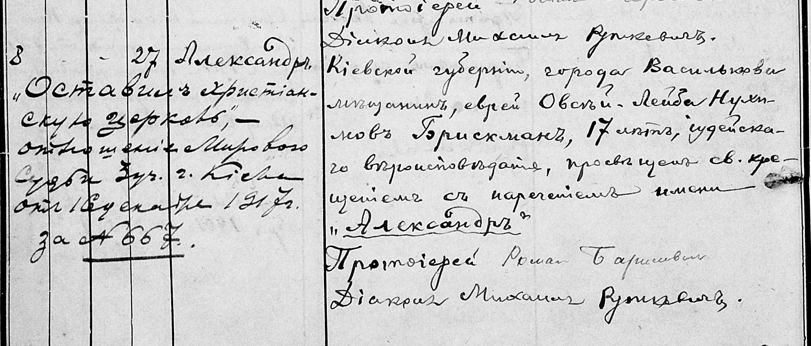 Протоіерей
Діаконъ Михаилъ Руткевичъ.
8 - 27 Александръ
„Оставилъ христіан-
скую церковь", –
отношеніе Мирового
Судьи 3 уч. г. Кіева
отъ 16 декабря 1917 г.
за № 667.
Кіевской губерніи, города Василькова
мѣщанинъ, еврей Овсѣй-Лейба Нухи-
мовъ Брискманъ, 17 лѣтъ, іудейска-
го вѣроисповѣданія, просвѣщенъ св. кре-
щеніемъ съ нареченіемъ имени
„Александръ"
Протоіерей Романъ
Діаконъ Михаилъ Руткевичъ.